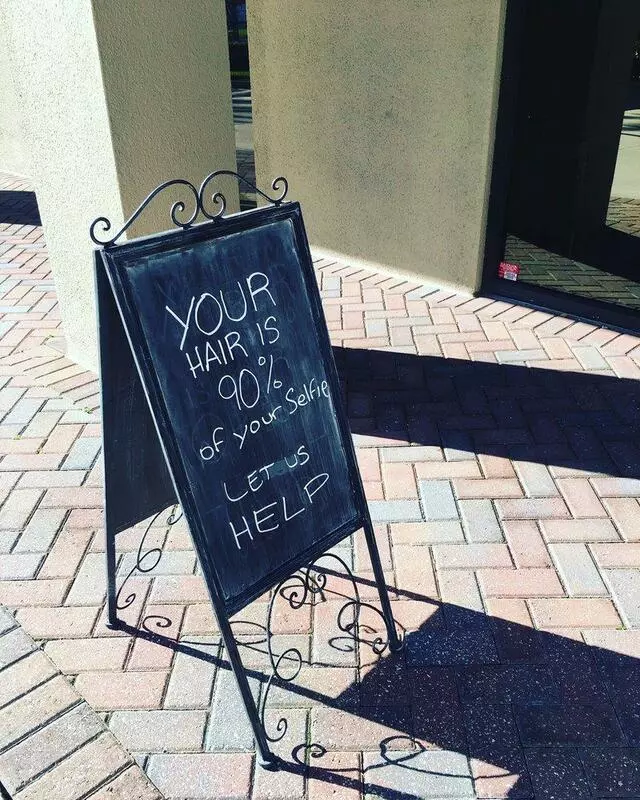 YOUR
HAIR IS
90%
of your Selfie
LET US
HELP